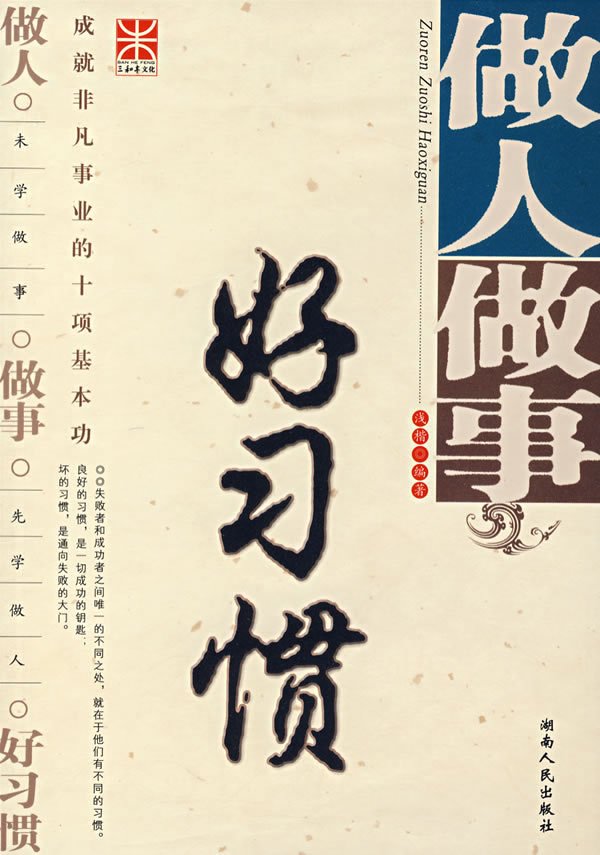 做人
做事
Zuoren Zuoshi Haoxiguan
浅楷◎编著
好习惯
湖南人民出版社
SAN HE FENG
三和丰文化
成就非凡事业的十项基本功
◎◎失败者和成功者之间唯一的不同之处，就在于他们有不同的习惯。
良好的习惯，是一切成功的钥匙；
坏的习惯，是通向失败的大门。
做人○未学做事○做事○先学做人○好习惯